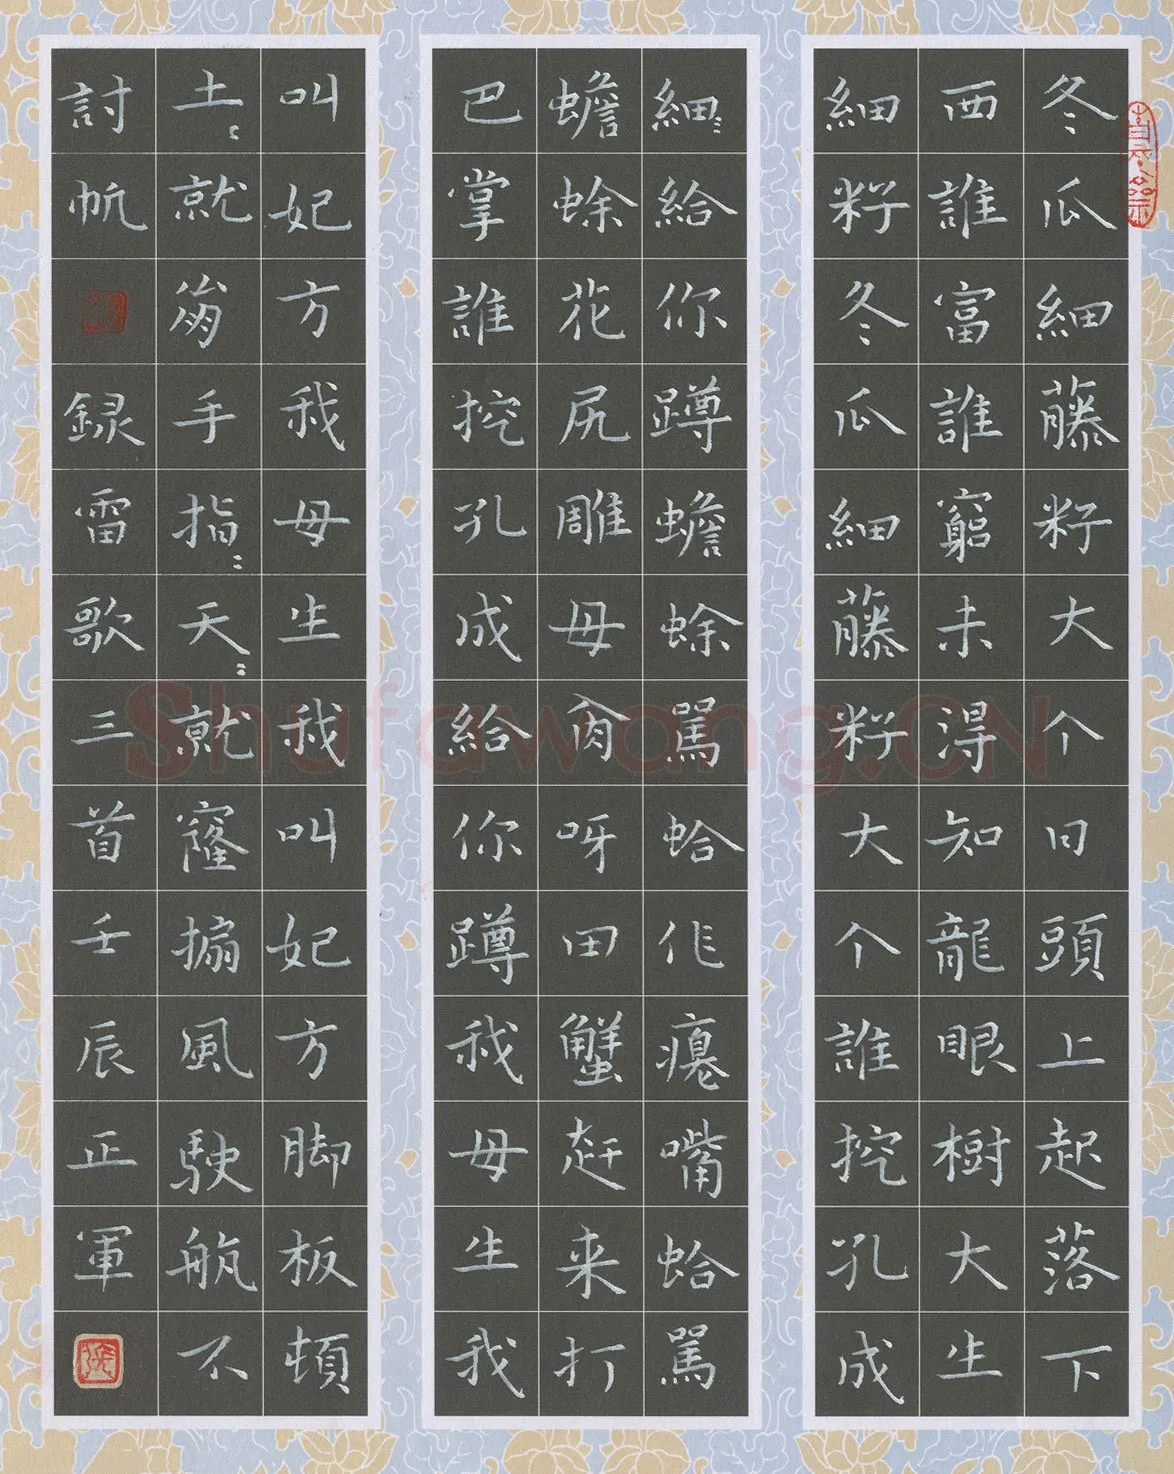 冬〻瓜細藤籽大个日頭上起落下
西誰富誰窮未淂知龍眼樹大生
細籽冬〻瓜細藤籽大个誰挖孔成
細〻給你蹲蟾蜍罵蛤作瘪嘴蛤罵
蟾蜍花尻雕母肏呀田蟹赶来打
巴掌誰挖孔成給你蹲我母生我
叫妃方我母生我叫妃方脚板頓
土〻就崩手指〻天〻就窿搧風駛舤不
討帆
録雷歌三首壬辰正軍
Shufawang.CN